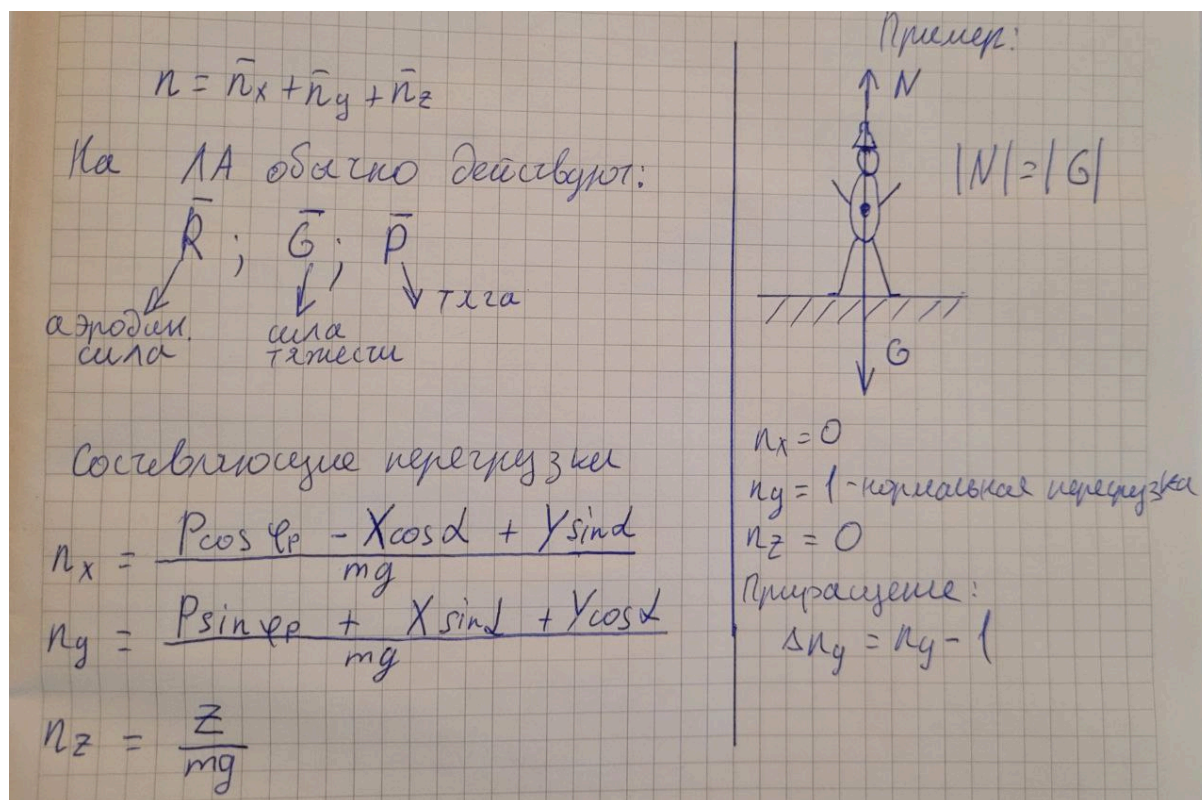 n = n̄x + n̄y + n̄z
На ЛА обычно действуют:
R̄ ; Ḡ ; P̄
аэродин. сила
сила тяжести
тяга
Составляющие перегрузки
nx = (Pcos φp - Xcosα + Ysinα) / mg
ny = (Psin φp + Xsinα + Ycosα) / mg
nz = Z / mg
Пример:
N
|N| = |G|
G
nx = 0
ny = 1 - нормальная перегрузка
nz = 0
Приращение:
Δny = ny - 1